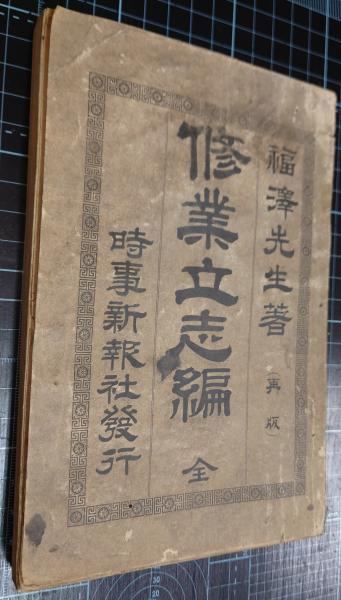 福澤先生著 再版
修業立志編 全
時事新報社發行
20
30